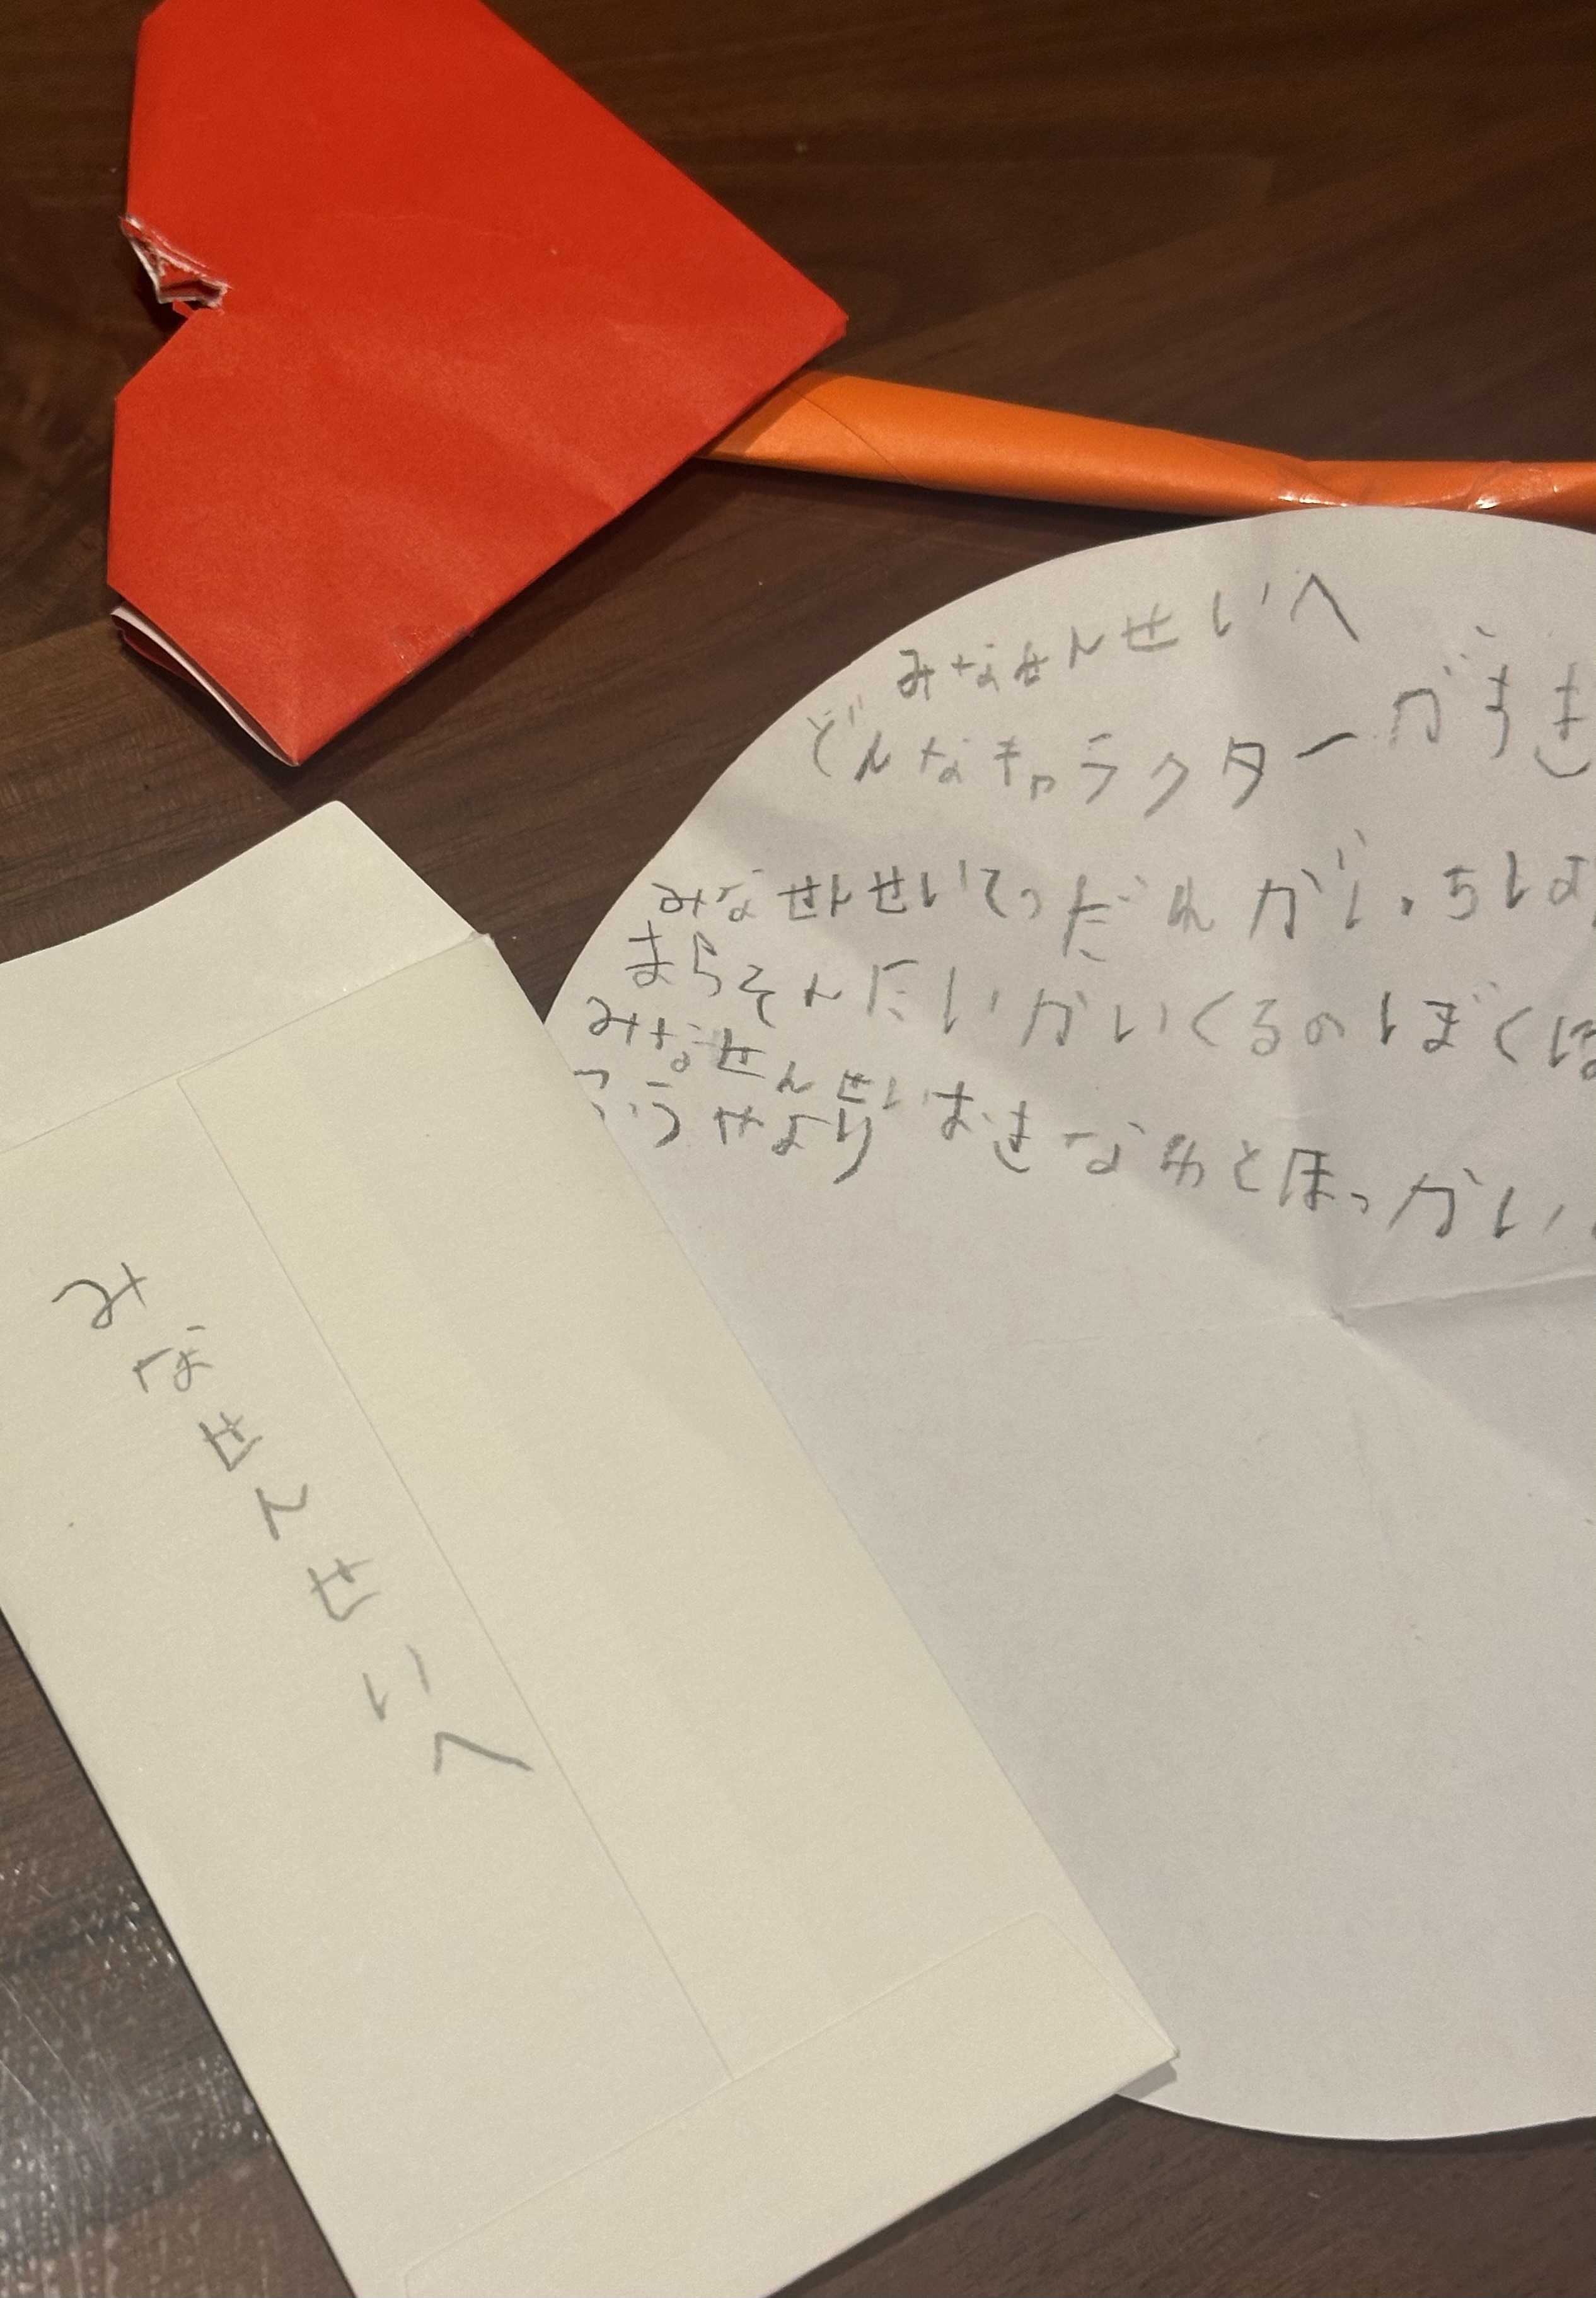 みなせんせいへ
どんなキャラクターがすき
みなせんせいてっだれがい,ちしょ
まらそんたいかいくるのしぼくは
みなせんせいおきなわとほっかい
うやより
みなせんせいへ